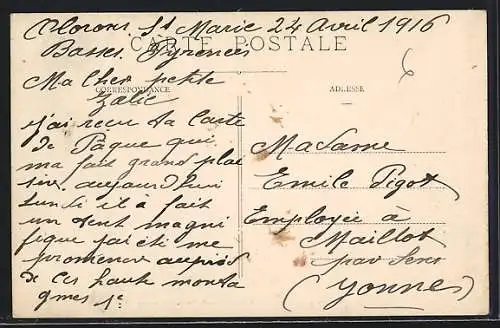 Oloron St Marie 24 Avril 1916
Basses Pyrenées
CARTE POSTALE
Ma cher petite
CORRESPONDANCE
ADRESSE
j'ai recu ta Carte
de Paque qui
ma fait grand plai
sir. aujourd'hui
lundi il a fait
un tent magni
fique j'ai été me
promener aupied
de ces haute monta
gnes
Madame
Emile Pigot
Employée à
Maillot
par Sens
(Yonne)